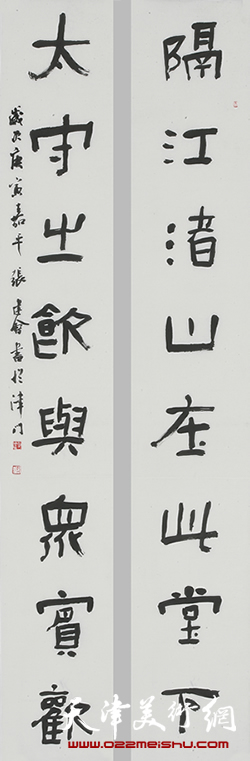 隔江渚山在此堂下
太守之飲與眾賓歡
歲次庚寅嘉平張建會書於津門
天津美術網
www.022meishu.com